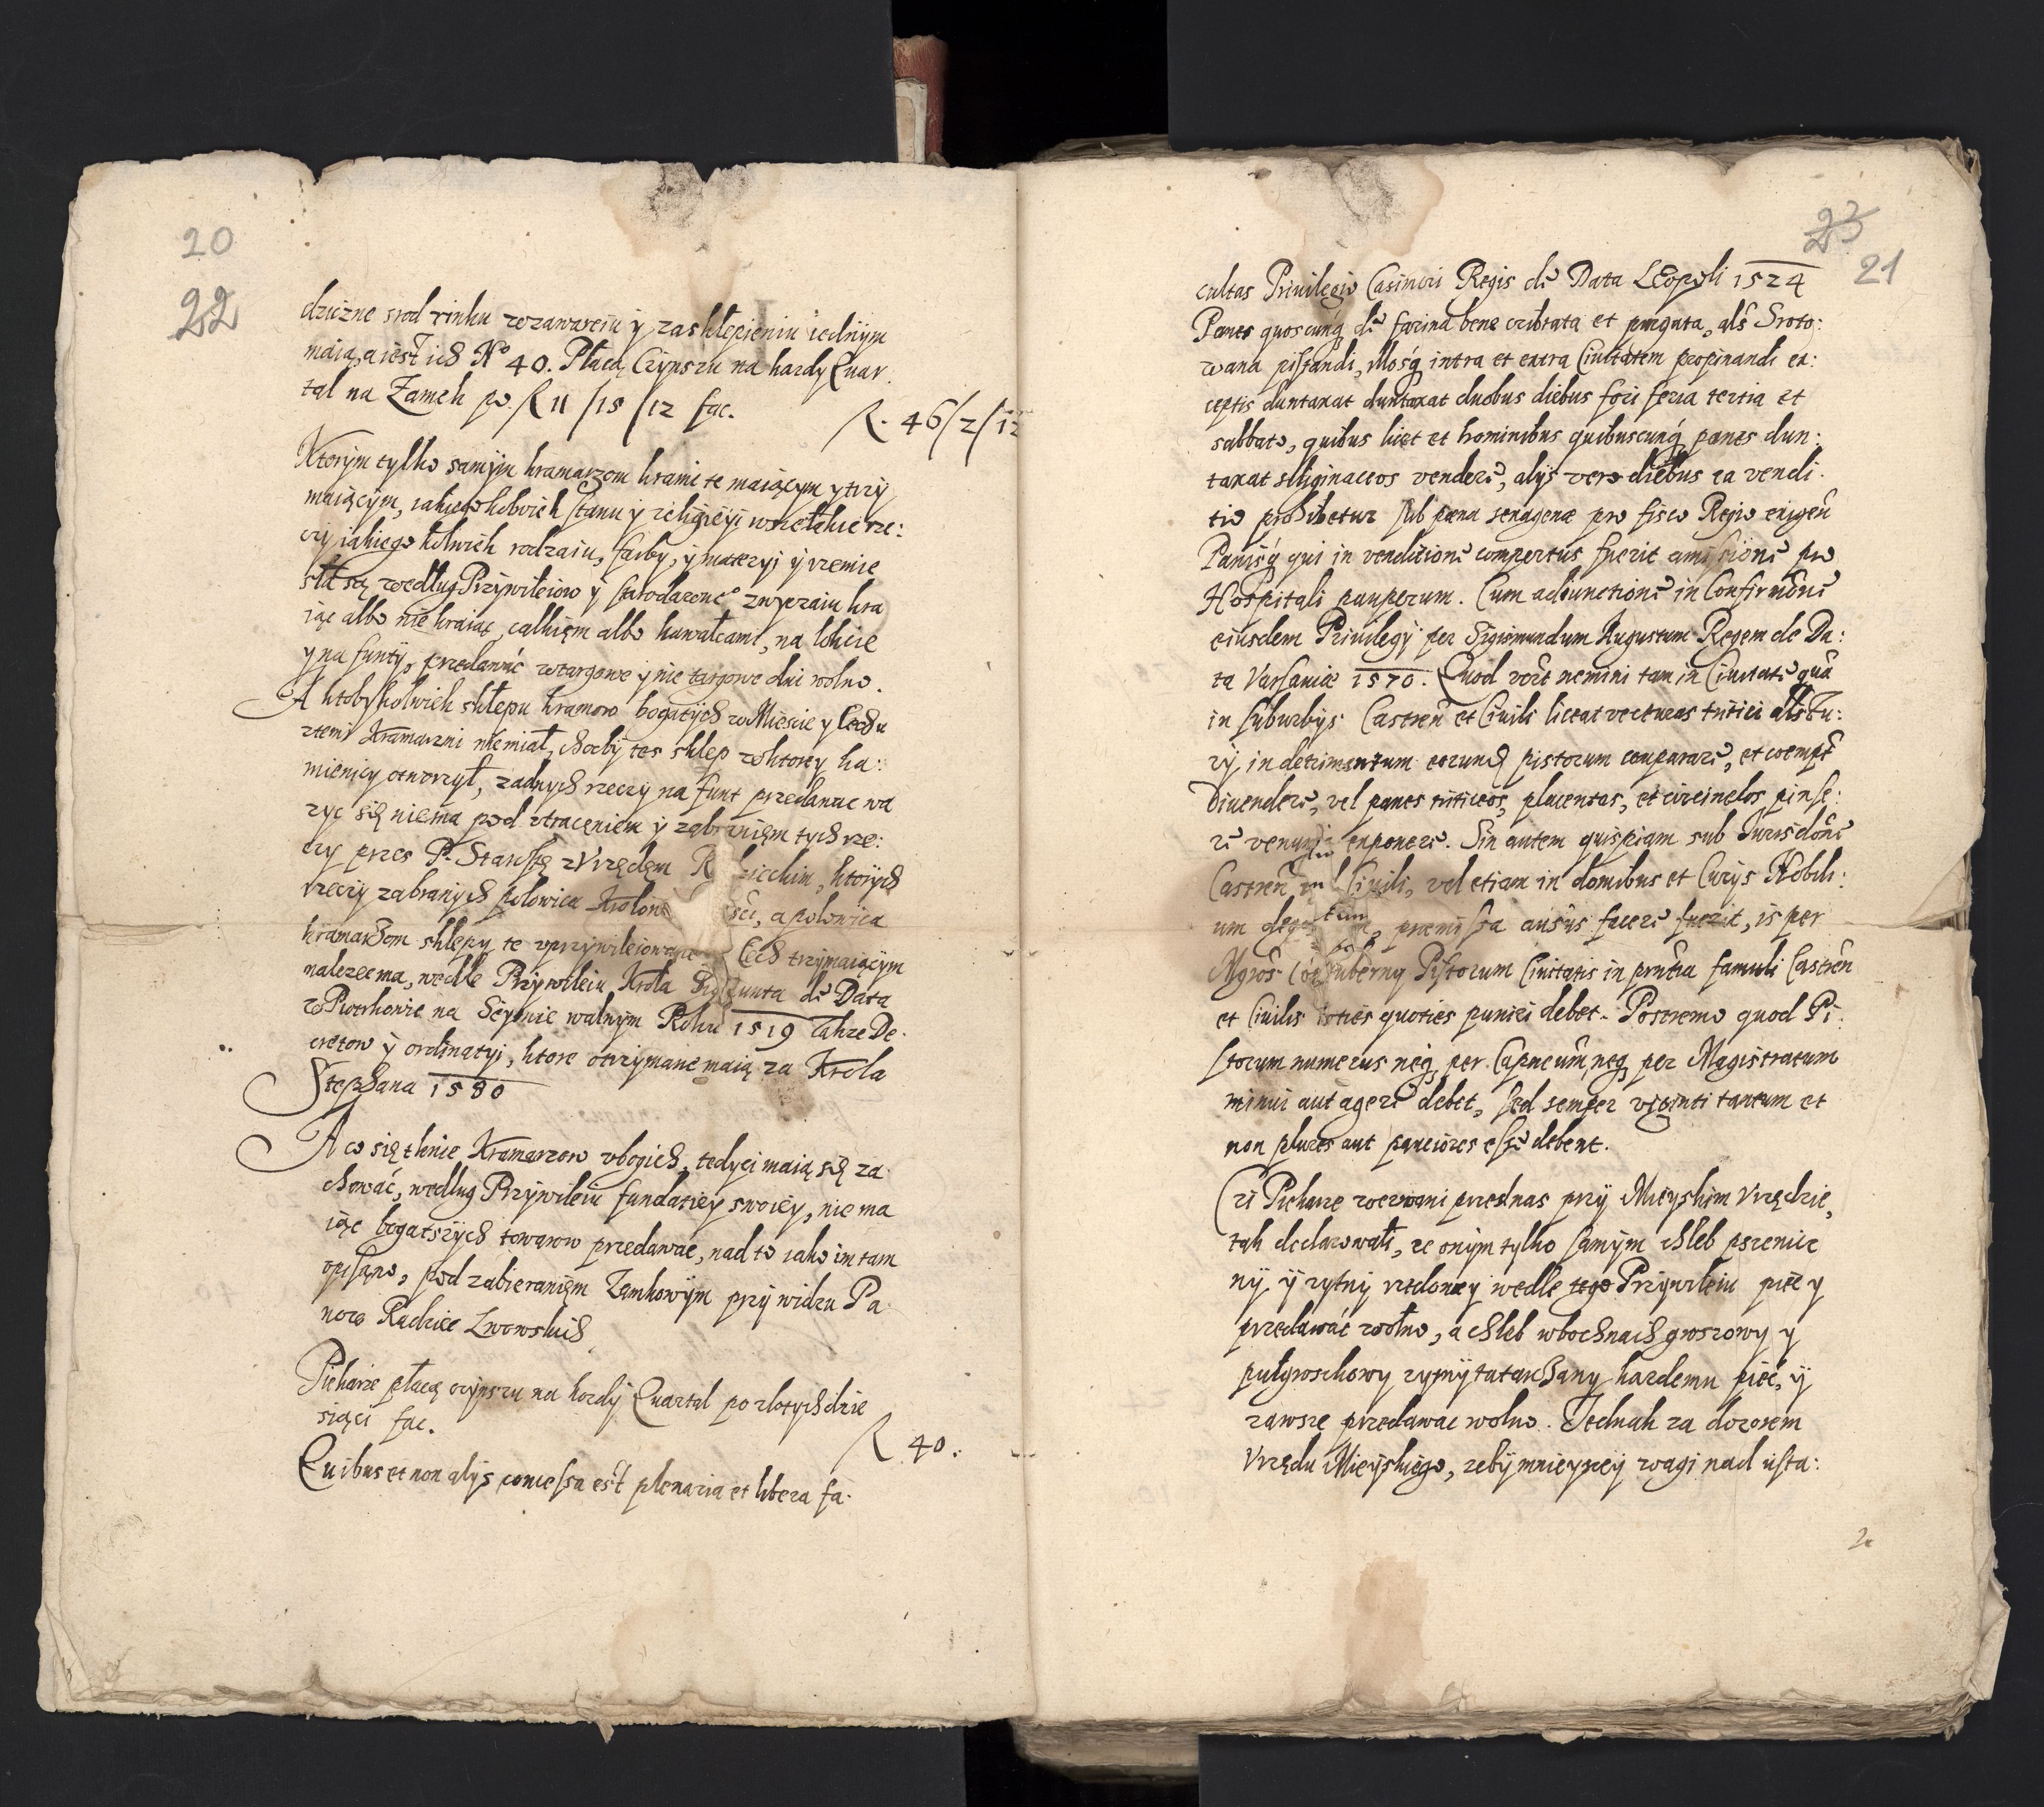 20
22
dziczne srod rinku w zawarciu y zasklepieniu iednym
maią, a iest ich No 40. Płacą Czynszu na kazdy Quar
tał na Zamek po. fl 11/15/12 fac.
fl. 46/2/12
Ktorym tylko samym kramarzom kramite maiącym y trzy
maiącym, iakiegokolwiek stanu y religieyi wszelakie rze:
czy iakiego kolwiek rodzaiu, farby, y materyi y rzemie
sła są według Przywileiow y starodawne° zwyczaiu kra
iąc albo nie kraiąc, całkiem albo kawałcami, na łokcie
y na funty, przedawać w targowe y nie targowe dni wolno.
A ktobykolwiek sklepu kramow bogatych w Miescie y Cechu
z temi Kramarzmi niemiał, choćby tes sklep w ktorey ka:
mienicy otworzył, zadnych rzeczy na funt przedawac wa
zyc się niema pod utraceniem y zabranięm tych rze:
czy przes P. Starostę z Urzędem R dzieckim, ktorych
rzeczy zabranych polowica Krolow sci, a polowica
kramarzom sklepy te uprzywileiowane Cech trzymaiącym
nalezec ma, wedle Przywileiu Krola Sigmunta de Data
w Piotrkowie na Seymie walnym Roku 1519 Takze De:
cretow y ordinatyi, ktore otrzymane maią za Krola
Stephana 1580
A co się tknie Kramarzow ubogich, tedy ci maią się za
chować, według Przywileiu fundatiey swoiey, nie ma
iąc bogatszych towarow przedawac, nad to iako im tam
opisano, pod zabieranięm Zamkowym przy widzu Pa
now Radziec Lwowskich
Piekarze płacą czynszu na kozdy Quartal po zlotych dzie
siąci fac.
fl 40.
Quibus et non alijs concessa est plenaria et libera fa:
23
21
cultas Priuilegio Casimiri Regis de Data Leopoli 1524
Panes quoscunq de farina bene cribrata et purgata, als Sroto:
wana pistandi, illosq intra et extra Ciuitatem propinandi ex:
ceptis duntaxat duntaxat duobus diebus fori feria tertia et
sabbato, quibus licet et hominibus quibuscunq panes dun:
taxat siliginaceos vendere, alijs vero diebus ea vendi
tio prohibetur sub pæna sexagenæ pro fisco Regio exigen
Panisq qui in venditione compertus fuerit amissione pro
Hospitali pauperum. Cum adiunctione in Confirmone
eiusdem Priuilegij per Sigismundum Augustum Regem de Da:
ta Varsauiæ 1570. Quod vero nemini tam in Ciuitate quã
in suburbijs Castreñ et Ciuili liceat vecturas tritici als Fu:
ry, in detrimentum eorund pistorum comparare, et coempt
diuendere, vel panes triticeos, placentas, et circinelos pinse:
re venumq exponere. Sin autem quispiam sub Jurisdone
Castreñ vel Ciuili, vel etiam in domibus et Curijs Nobili:
um præmissa ausus facere fuerit, is per
Mgros Contuberny Pistorum Ciuitatis in prntia famuli Castreñ
et Ciuilis toties quoties puniri debet. Postremo quod Pi:
storum numerus neq per Capneum, neq per Magistratum
minui aut ageri debet, sed semper viginti tantum et
non plures aut pauciores esse debent.
Ci Piekarze wezwani przednas przy Mieyskim Urzędzie,
tak declarowali, ze onym tylko samym chleb pszenic
ny, y zytny rzedoney wedle tego Przywileiu piec y
przedawać wolno, a chleb w bochnaich groszowy y
pułgroschowy zymytatarchany kazdemu piec, y
zawsze przedawac wolno. Jednak za dozorem
Urzędu Mieyskiego, zeby mnieyszey wagi nad usta: